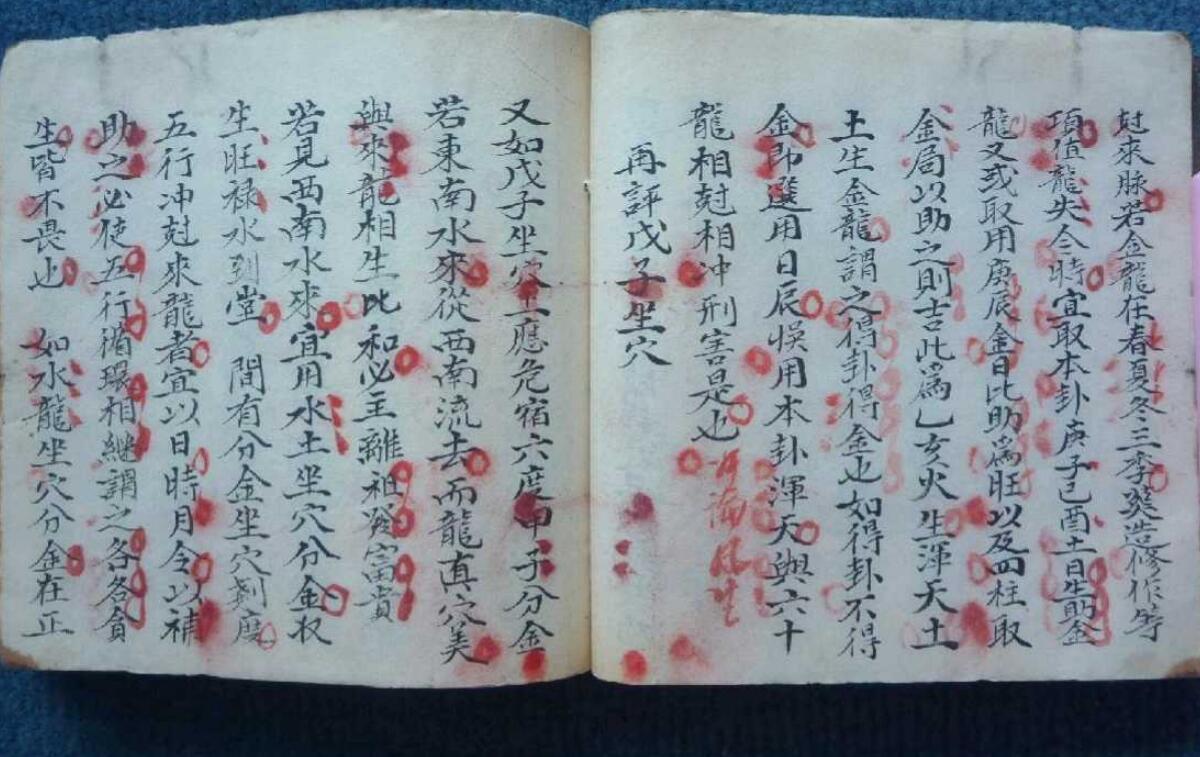 尅來脉若金龍在春夏冬三季𦵏造修作等
項值龍失令時宜取本卦庚子己酉土日生助金
龍又或取用庚辰金日比助為旺以及四柱取
金局以助之則吉此為乙亥火生渾天土
土生金龍謂之得卦得金也如得卦不得
金即選用日辰悞用本卦渾天與六十
龍相尅相冲刑害是也
再評戊子坐穴
又如戊子坐穴上應危宿六度甲子分金
若東南水來從西南流去而龍真穴美
與來龍相生比和必主離祖發富貴
若見西南水來宜用水土坐穴分金収
生旺禄水到堂 間有分金坐穴剋度
五行冲尅來龍者宜以日時月令以補
助之必使五行循環相継謂之各各貪
生皆不畏也 如水龍坐穴分金在正